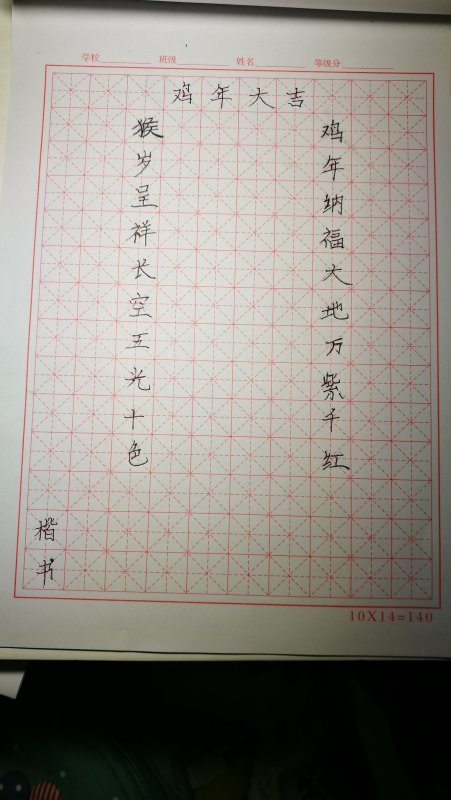 学校 班级 姓名 等级分
鸡年大吉
鸡年纳福大地万紫千红
猴岁呈祥长空五光十色
楷书
10X14=140